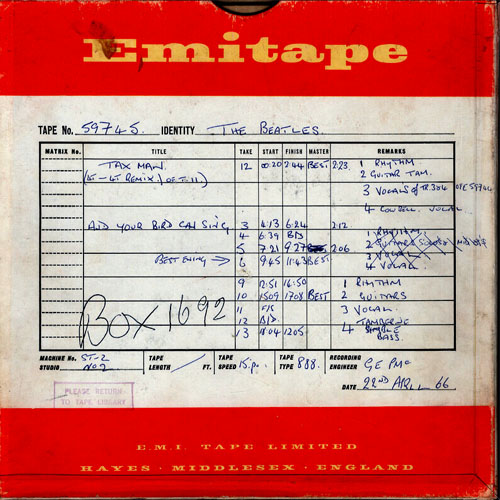 Emitape
TAPE No. 59745 IDENTITY THE BEATLES
MATRIX No. TITLE TAKE START FINISH MASTER REMARKS
TAX MAN. 12 00.20 2.44 BEST 2.23 1 RHYTHM
(4T-4T REMIX. OF T.11) 2 GUITAR TAM.
3 VOCALS
4 VOCAL
AND YOUR BIRD CAN SING 3 4.13 6.24 2.12
4 6.39 B/D 1 RHYTHM
5 7.21 9.27 BEST 2.06 2 GUITARS
BEST ENDING → 6 9.45 11.43 BEST 3 VOCAL
4 VOCAL
9 2.51 16.50 1 RHYTHM
10 1509 1708 BEST 2 GUITARS
11 F/S 3 VOCAL
12 B/D. 4 TAMBERNE
13 1804 1205 BASS
BOX 1692
MACHINE No. ST-2 TAPE TAPE 15 TAPE 888. RECORDING GE
STUDIO No 2 LENGTH FT. SPEED TYPE ENGINEER
DATE 22ND APRIL 66
PLEASE RETURN
TO TAPE LIBRARY
E.M.I. TAPE LIMITED
HAYES · MIDDLESEX · ENGLAND